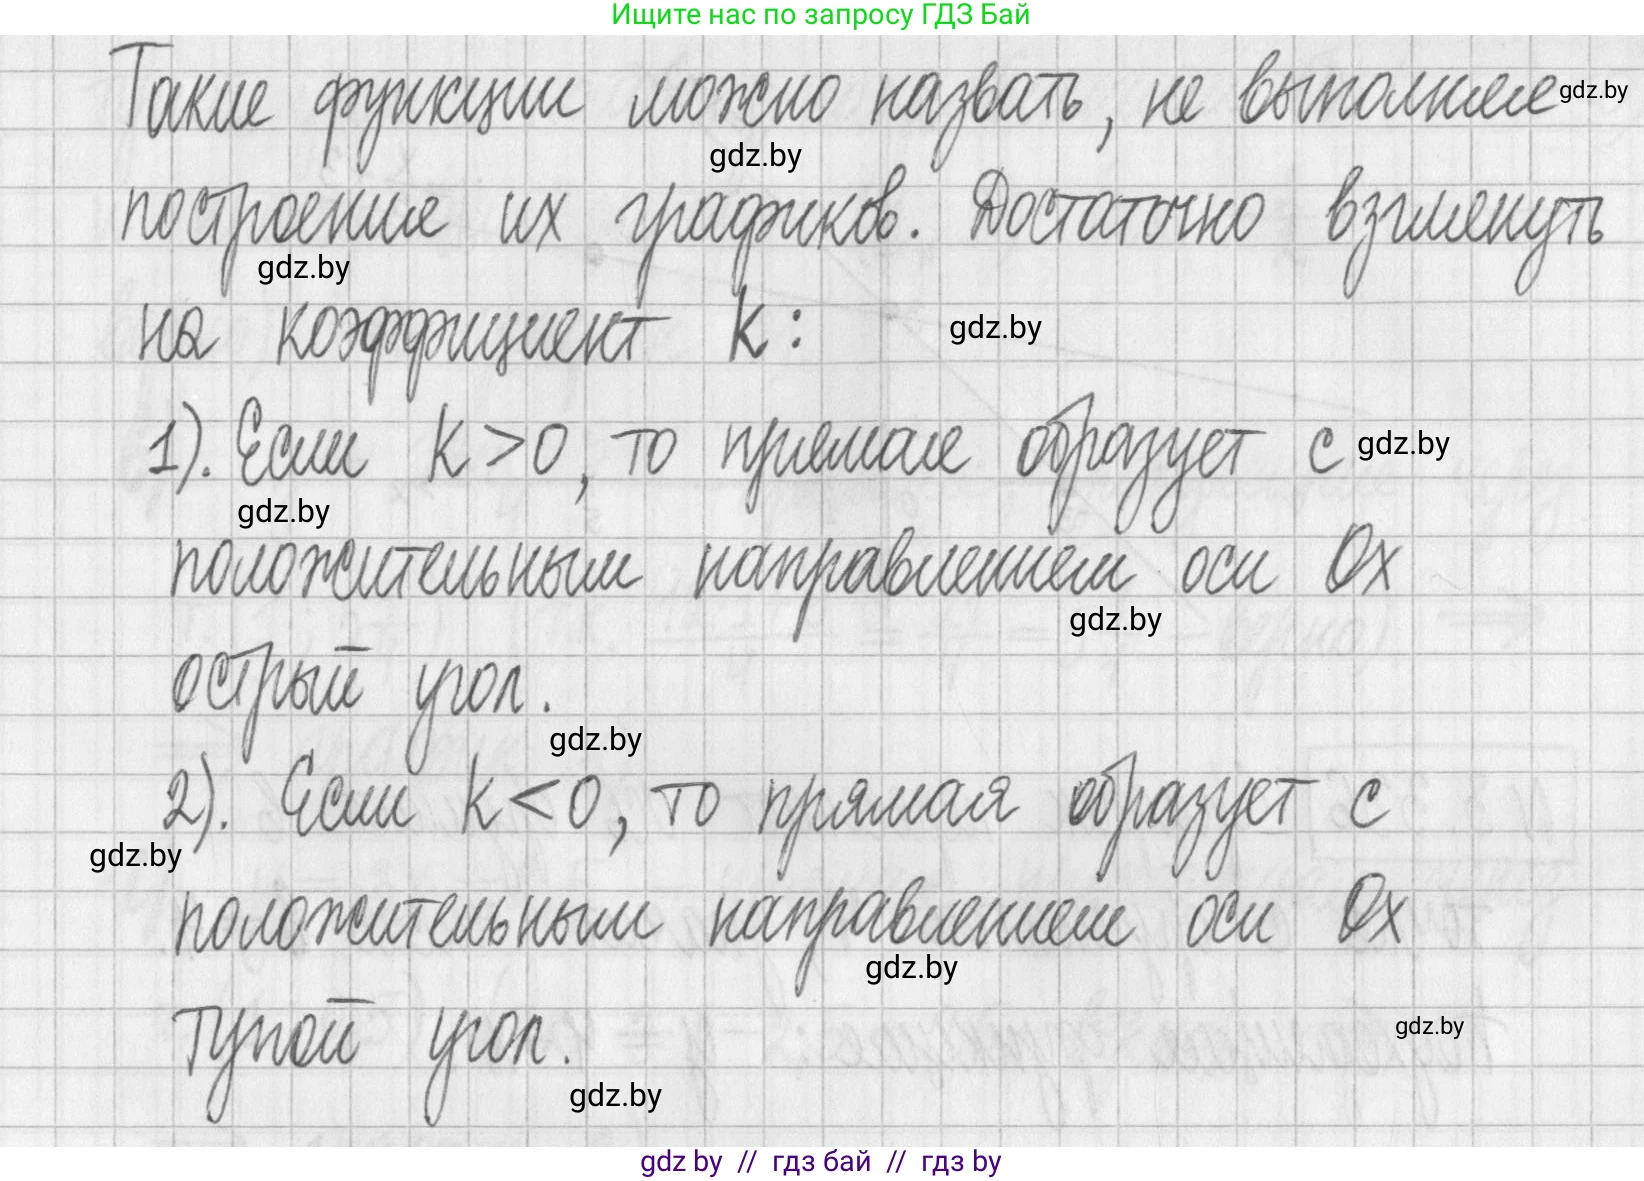 Ищите нас по запросу ГДЗ Бай
Такие функции можно назвать, не выполняя gdz.by
gdz.by
построения их графиков. Достаточно взглянуть
gdz.by
на коэффициент k: gdz.by
1). Если k > 0, то прямая образует с gdz.by
gdz.by
положительным направлением оси Ox
gdz.by
острый угол.
gdz.by
2). Если k < 0, то прямая образует с
gdz.by
положительным направлением оси Ox
gdz.by
тупой угол.
gdz.by
gdz.by
gdz by // гдз бай // гдз by